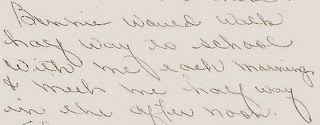 Bonnie would walk
half way to school
with me each morning
& meet me half way
in the after noon.